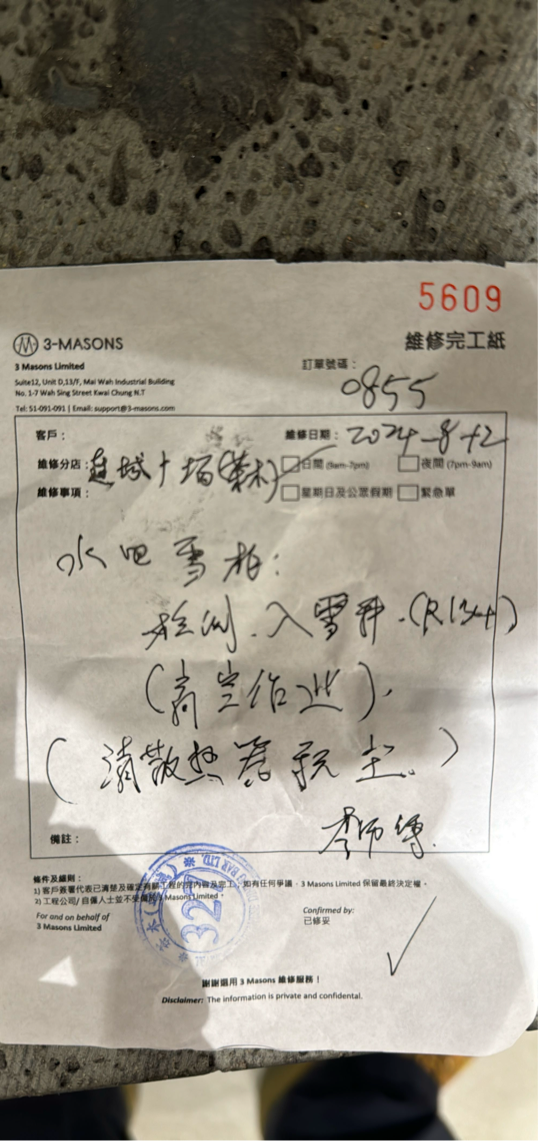 5609
3-MASONS
維修完工紙
3 Masons Limited
訂單號碼：
Suite12, Unit D,13/F, Mai Wah Industrial Building
No. 1-7 Wah Sing Street Kwai Chung N.T
0855
Tel: 51-091-091 | Email: support@3-masons.com
客戶：
維修日期： 2024-8-12
維修分店：
日間 (9am-7pm) 夜間 (7pm-9am)
維修事項：
星期日及公眾假期 緊急單
水吧雪柜：
檢測．入雪种．(R134)
(高空作业)．
(清散热器积尘。)
李师傅
備註：
條件及細則：
1) 客戶簽署代表已清楚及確定有關工程的 內容及完工，如有任何爭議，3 Masons Limited 保留最終決定權。
2) 工程公司/ 自僱人士並不受僱於3 Masons Limited。
For and on behalf of
3 Masons Limited
Confirmed by:
已修妥
327
BAR LTD.
謝謝選用 3 Masons 維修服務！
Disclaimer: The information is private and confidential.